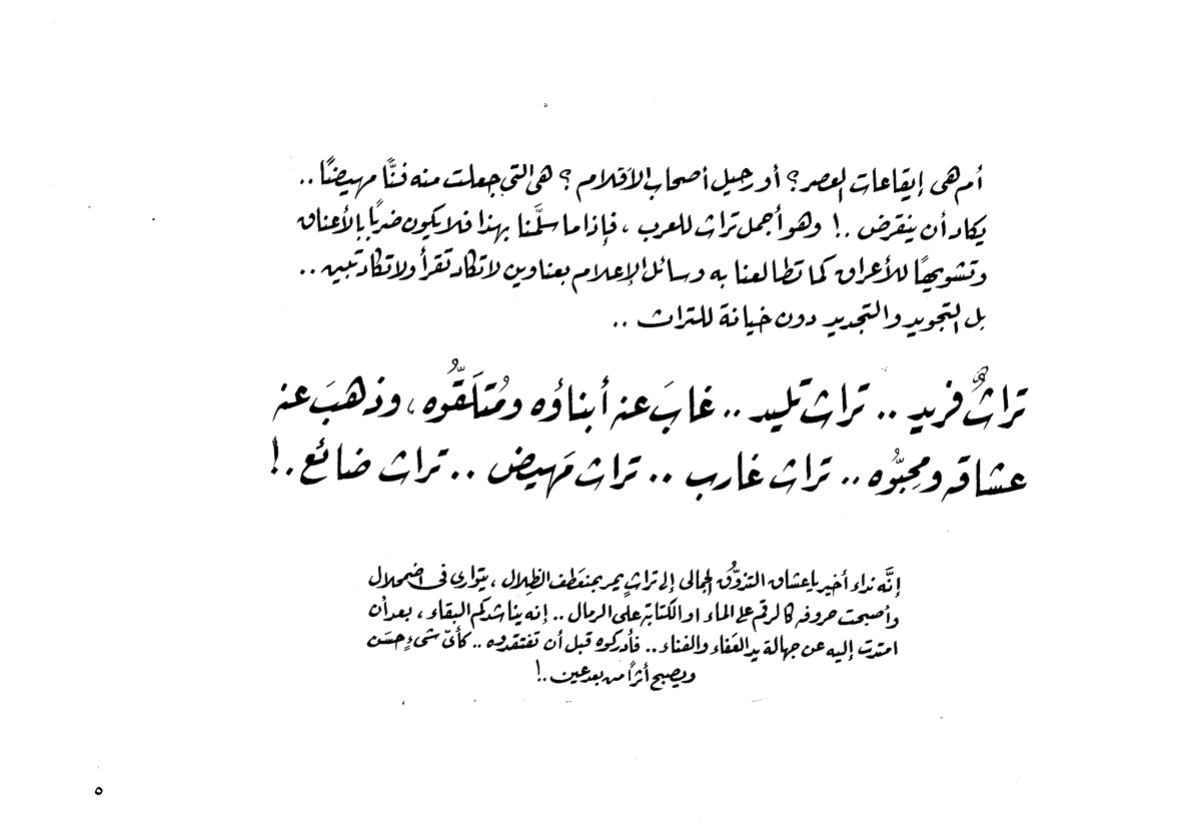 أم هى إيقاعات العصر؟ أو رحيل أصحاب الأقلام؟ هى التى جعلت منه فنًّا مهيضًا..
يكاد أن ينقرض .! وهو أجمل تراث للعرب، فإذا ما سلَّمنا بهذا فلا يكون ضربًا بالأعناق
وتشويهًا للأعراق كما تطالعنا به وسائل الإعلام بعناوين لا تكاد تقرأ ولا تكاد تبين..
بل التجويد والتجديد دون خيانة للتراث ..
تراثٌ فريد .. تراث تليد .. غابَ عنه أبناؤه ومُتلَقُّوه، وذهبَ عنه
عشاقه ومحِبُّوه .. تراث غارب .. تراث مَهيض .. تراث ضائع .!
إنَّه نداء أخير يا عشاق التذوُّق الجمالى إلى تراثٍ يمر بمنعَطف الظِلال، يتوارى فى اضمحلال
وأصبحت حروفه كالرقم على الماء او الكتابة على الرمال .. إنه يناشدكم البقاء، بعد أن
امتدت إليه عن جهالة يد العَفاء والفناء .. فأدركوه قبل أن تفتقدوه .. كأىّ شىءٍ حسَن
ويصبح أثرًا من بعد عين .!
٥